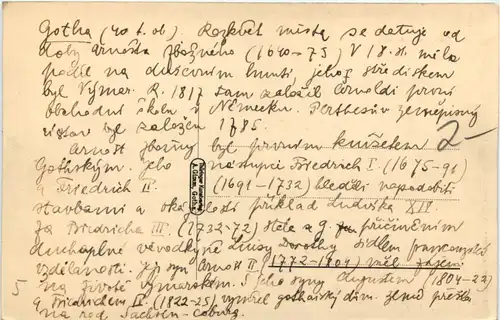 Gotha (40 t. ob). Rozkvět města se datuje od
doby Arnošta Zbožného (1640-75) V 18. st. mělo
podíl na duševním hnutí, jehož střediskem
byl Výmar. R. 1817 tam založil Arnoldi první
obchodní školu v Německu. Perthesův zeměpisný
ústav byl založen 1785.
Arnošt Zbožný byl prvním knížetem
Gothským. Jeho nástupci Friedrich I. (1675-91)
a Friedrich II. (1691-1732) hleděli napodobiti
stavbami a okázalostí příklad Ludvíka XIV.
Za Friedricha III. (1732-72) stala se g. přičiněním
duchaplné vévodkyně Luisy Dorothy sídlem francouzské
vzdělanosti. Její syn Arnošt II. (1772-1804) měl zájem
na životě výmarském. S jeho syny Augustem (1804-22)
a Friedrichem IV. (1822-25) vymřel gothaický dům. země přešla
na rod Sachsen-Coburg.
2-
5